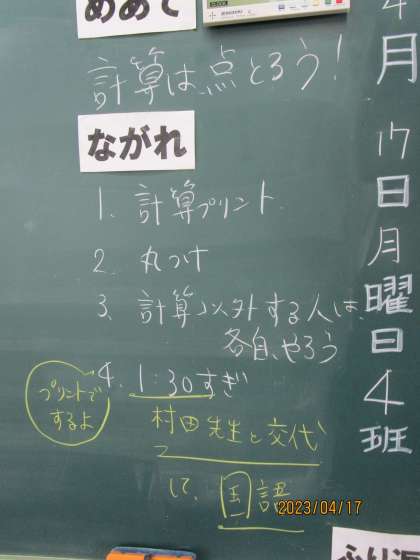 めあて
計算は、点とろう!
ながれ
1. 計算プリント
2. 丸つけ
3. 計算以外する人は、
各自、やろう
4. 1:30すぎ
村田先生と交代
して、国語
プリントで
するよ
4月17日月曜日4班
2023/04/17